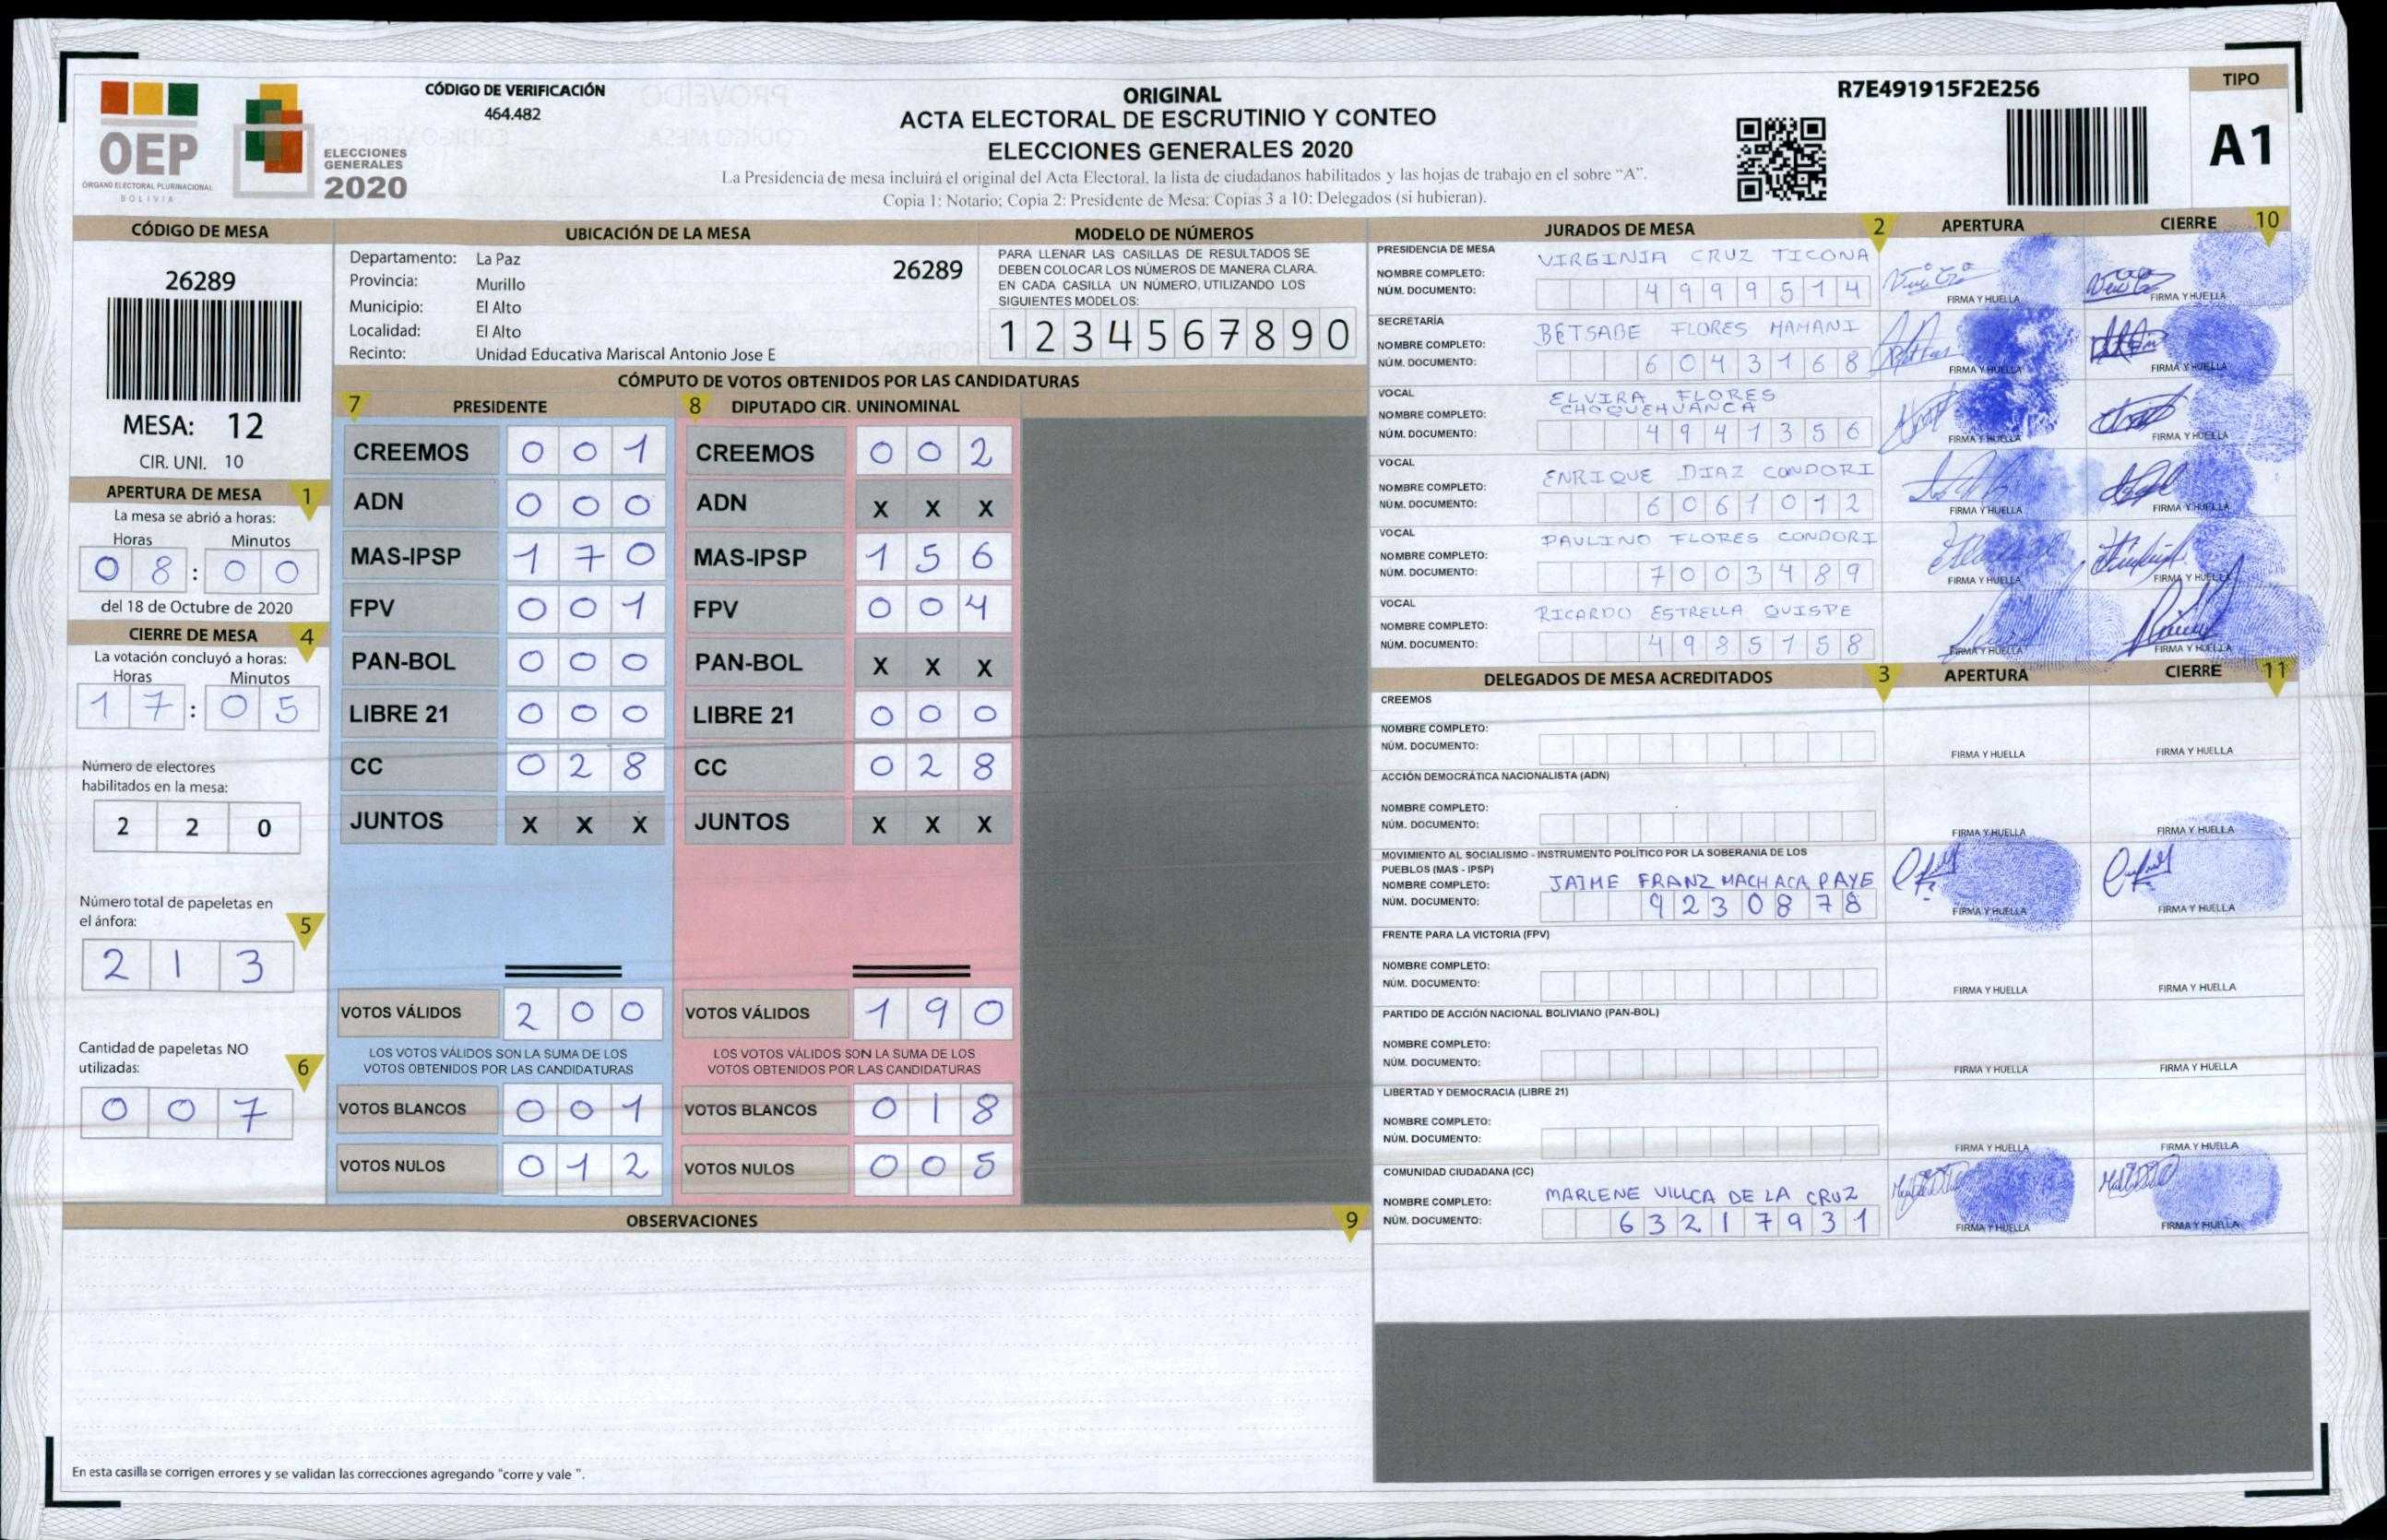 OEP
ÓRGANO ELECTORAL PLURINACIONAL
BOLIVIA
ELECCIONES
GENERALES
2020
CÓDIGO DE VERIFICACIÓN
464.482
ORIGINAL
ACTA ELECTORAL DE ESCRUTINIO Y CONTEO
ELECCIONES GENERALES 2020
La Presidencia de mesa incluirá el original del Acta Electoral, la lista de ciudadanos habilitados y las hojas de trabajo en el sobre "A".
Copia 1: Notario; Copia 2: Presidente de Mesa; Copias 3 a 10: Delegados (si hubieran).
R7E491915F2E256
TIPO
A1
CÓDIGO DE MESA
26289
MESA: 12
CIR. UNI. 10
APERTURA DE MESA 1
La mesa se abrió a horas:
Horas Minutos
0 8 : 0 0
del 18 de Octubre de 2020
CIERRE DE MESA 4
La votación concluyó a horas:
Horas Minutos
1 7 : 0 5
Número de electores
habilitados en la mesa:
2 2 0
Número total de papeletas en
el ánfora: 5
2 1 3
Cantidad de papeletas NO
utilizadas: 6
0 0 7
UBICACIÓN DE LA MESA
Departamento: La Paz
26289
Provincia: Murillo
Municipio: El Alto
Localidad: El Alto
Recinto: Unidad Educativa Mariscal Antonio Jose E
MODELO DE NÚMEROS
PARA LLENAR LAS CASILLAS DE RESULTADOS SE
DEBEN COLOCAR LOS NÚMEROS DE MANERA CLARA.
EN CADA CASILLA UN NÚMERO, UTILIZANDO LOS
SIGUIENTES MODELOS:
1 2 3 4 5 6 7 8 9 0
CÓMPUTO DE VOTOS OBTENIDOS POR LAS CANDIDATURAS
7 PRESIDENTE 8 DIPUTADO CIR. UNINOMINAL
CREEMOS 0 0 1 CREEMOS 0 0 2
ADN 0 0 0 ADN X X X
MAS-IPSP 1 7 0 MAS-IPSP 1 5 6
FPV 0 0 1 FPV 0 0 4
PAN-BOL 0 0 0 PAN-BOL X X X
LIBRE 21 0 0 0 LIBRE 21 0 0 0
CC 0 2 8 CC 0 2 8
JUNTOS X X X JUNTOS X X X
VOTOS VÁLIDOS 2 0 0 VOTOS VÁLIDOS 1 9 0
LOS VOTOS VÁLIDOS SON LA SUMA DE LOS LOS VOTOS VÁLIDOS SON LA SUMA DE LOS
VOTOS OBTENIDOS POR LAS CANDIDATURAS VOTOS OBTENIDOS POR LAS CANDIDATURAS
VOTOS BLANCOS 0 0 1 VOTOS BLANCOS 0 1 8
VOTOS NULOS 0 1 2 VOTOS NULOS 0 0 5
OBSERVACIONES 9
En esta casilla se corrigen errores y se validan las correcciones agregando "corre y vale ".
JURADOS DE MESA 2 APERTURA CIERRE 10
PRESIDENCIA DE MESA
NOMBRE COMPLETO: VIRGINIA CRUZ TICONA
NÚM. DOCUMENTO: 4 9 9 9 5 1 4
FIRMA Y HUELLA FIRMA Y HUELLA
SECRETARÍA
NOMBRE COMPLETO: BETSABE FLORES MAMANI
NÚM. DOCUMENTO: 6 0 4 3 1 6 8
FIRMA Y HUELLA FIRMA Y HUELLA
VOCAL
NOMBRE COMPLETO: ELVIRA FLORES
CHOQUEHUANCA
NÚM. DOCUMENTO: 4 9 4 1 3 5 6
FIRMA Y HUELLA FIRMA Y HUELLA
VOCAL
NOMBRE COMPLETO: ENRIQUE DIAZ CONDORI
NÚM. DOCUMENTO: 6 0 6 1 0 1 2
FIRMA Y HUELLA FIRMA Y HUELLA
VOCAL
NOMBRE COMPLETO: PAULINO FLORES CONDORI
NÚM. DOCUMENTO: 7 0 0 3 4 8 9
FIRMA Y HUELLA FIRMA Y HUELLA
VOCAL
NOMBRE COMPLETO: RICARDO ESTRELLA QUISPE
NÚM. DOCUMENTO: 4 9 8 5 1 5 8
FIRMA Y HUELLA FIRMA Y HUELLA
DELEGADOS DE MESA ACREDITADOS 3 APERTURA CIERRE 11
CREEMOS
NOMBRE COMPLETO:
NÚM. DOCUMENTO:
FIRMA Y HUELLA FIRMA Y HUELLA
ACCIÓN DEMOCRÁTICA NACIONALISTA (ADN)
NOMBRE COMPLETO:
NÚM. DOCUMENTO:
FIRMA Y HUELLA FIRMA Y HUELLA
MOVIMIENTO AL SOCIALISMO - INSTRUMENTO POLÍTICO POR LA SOBERANIA DE LOS
PUEBLOS (MAS - IPSP)
NOMBRE COMPLETO: JAIME FRANZ MACHACA PAYE
NÚM. DOCUMENTO: 9 2 3 0 8 7 8
FIRMA Y HUELLA FIRMA Y HUELLA
FRENTE PARA LA VICTORIA (FPV)
NOMBRE COMPLETO:
NÚM. DOCUMENTO:
FIRMA Y HUELLA FIRMA Y HUELLA
PARTIDO DE ACCIÓN NACIONAL BOLIVIANO (PAN-BOL)
NOMBRE COMPLETO:
NÚM. DOCUMENTO:
FIRMA Y HUELLA FIRMA Y HUELLA
LIBERTAD Y DEMOCRACIA (LIBRE 21)
NOMBRE COMPLETO:
NÚM. DOCUMENTO:
FIRMA Y HUELLA FIRMA Y HUELLA
COMUNIDAD CIUDADANA (CC)
NOMBRE COMPLETO: MARLENE VILLCA DE LA CRUZ
NÚM. DOCUMENTO: 6 3 2 1 7 9 3 1
FIRMA Y HUELLA FIRMA Y HUELLA